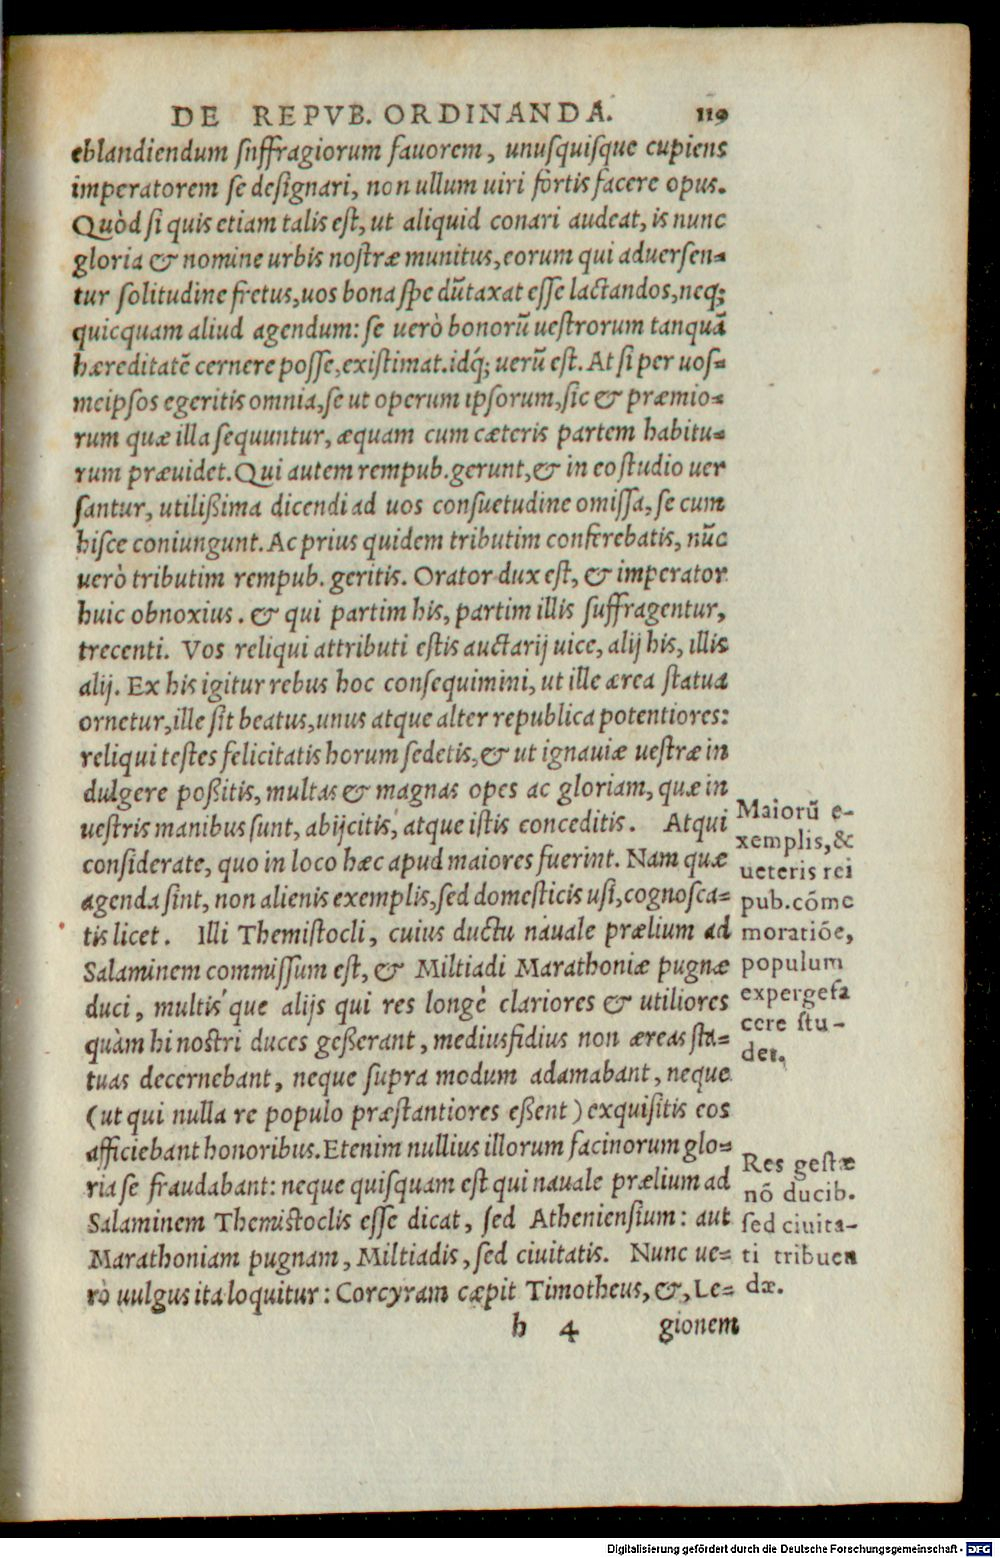 DE REPVB. ORDINANDA. 119
eblandiendum suffragiorum fauorem, unusquisque cupiens
imperatorem se designari, non ullum uiri fortis facere opus.
Quòd si quis etiam talis est, ut aliquid conari audeat, is nunc
gloria & nomine urbis nostræ munitus, eorum qui aduersen-
tur solitudine fretus, uos bona spe dũtaxat esse lactandos, neq;
quicquam aliud agendum: se uerò bonorũ uestrorum tanquã
hæreditatẽ cernere posse, existimat. idq́; uerũ est. At si per uos-
meipsos egeritis omnia, se ut operum ipsorum, sic & præmio-
rum quæ illa sequuntur, æquam cum cæteris partem habitu-
rum præuidet. Qui autem rempub. gerunt, & in eo studio uer
santur, utilißima dicendi ad uos consuetudine omissa, se cum
hisce coniungunt. Ac prius quidem tributim conferebatis, nũc
uerò tributim rempub. geritis. Orator dux est, & imperator
huic obnoxius. & qui partim his, partim illis suffragentur,
trecenti. Vos reliqui attributi estis auctarij uice, alij his, illis
alij. Ex his igitur rebus hoc consequimini, ut ille ærea statua
ornetur, ille sit beatus, unus atque alter republica potentiores:
reliqui testes felicitatis horum sedetis, & ut ignauiæ uestræ in
dulgere poßitis, multas & magnas opes ac gloriam, quæ in
uestris manibus sunt, abijcitis, atque istis conceditis. Atqui
considerate, quo in loco hæc apud maiores fuerint. Nam quæ
agenda sint, non alienis exemplis, sed domesticis usi, cognosca-
tis licet. Illi Themistocli, cuius ductu nauale prælium ad
Salaminem commissum est, & Miltiadi Marathoniæ pugnæ
duci, multis´que alijs qui res longè clariores & utiliores
quàm hi nostri duces geßerant, mediusfidius non æreas sta-
tuas decernebant, neque supra modum adamabant, neque
(ut qui nulla re populo præstantiores eßent) exquisitis eos
afficiebant honoribus. Etenim nullius illorum facinorum glo-
ria se fraudabant: neque quisquam est qui nauale prælium ad
Salaminem Themistoclis esse dicat, sed Atheniensium: aut
Marathoniam pugnam, Miltiadis, sed ciuitatis. Nunc ue-
rò uulgus ita loquitur: Corcyram cæpit Timotheus, &, Le-
h 4 gionem
Maiorũ e-
xemplis, &
ueteris rei
pub. cõme
moratiõe,
populum
expergefa
cere stu-
det.
Res gestæ
nõ ducib.
sed ciuita-
ti tribuen
dæ.
Digitalisierung gefördert durch die Deutsche Forschungsgemeinschaft - DFG